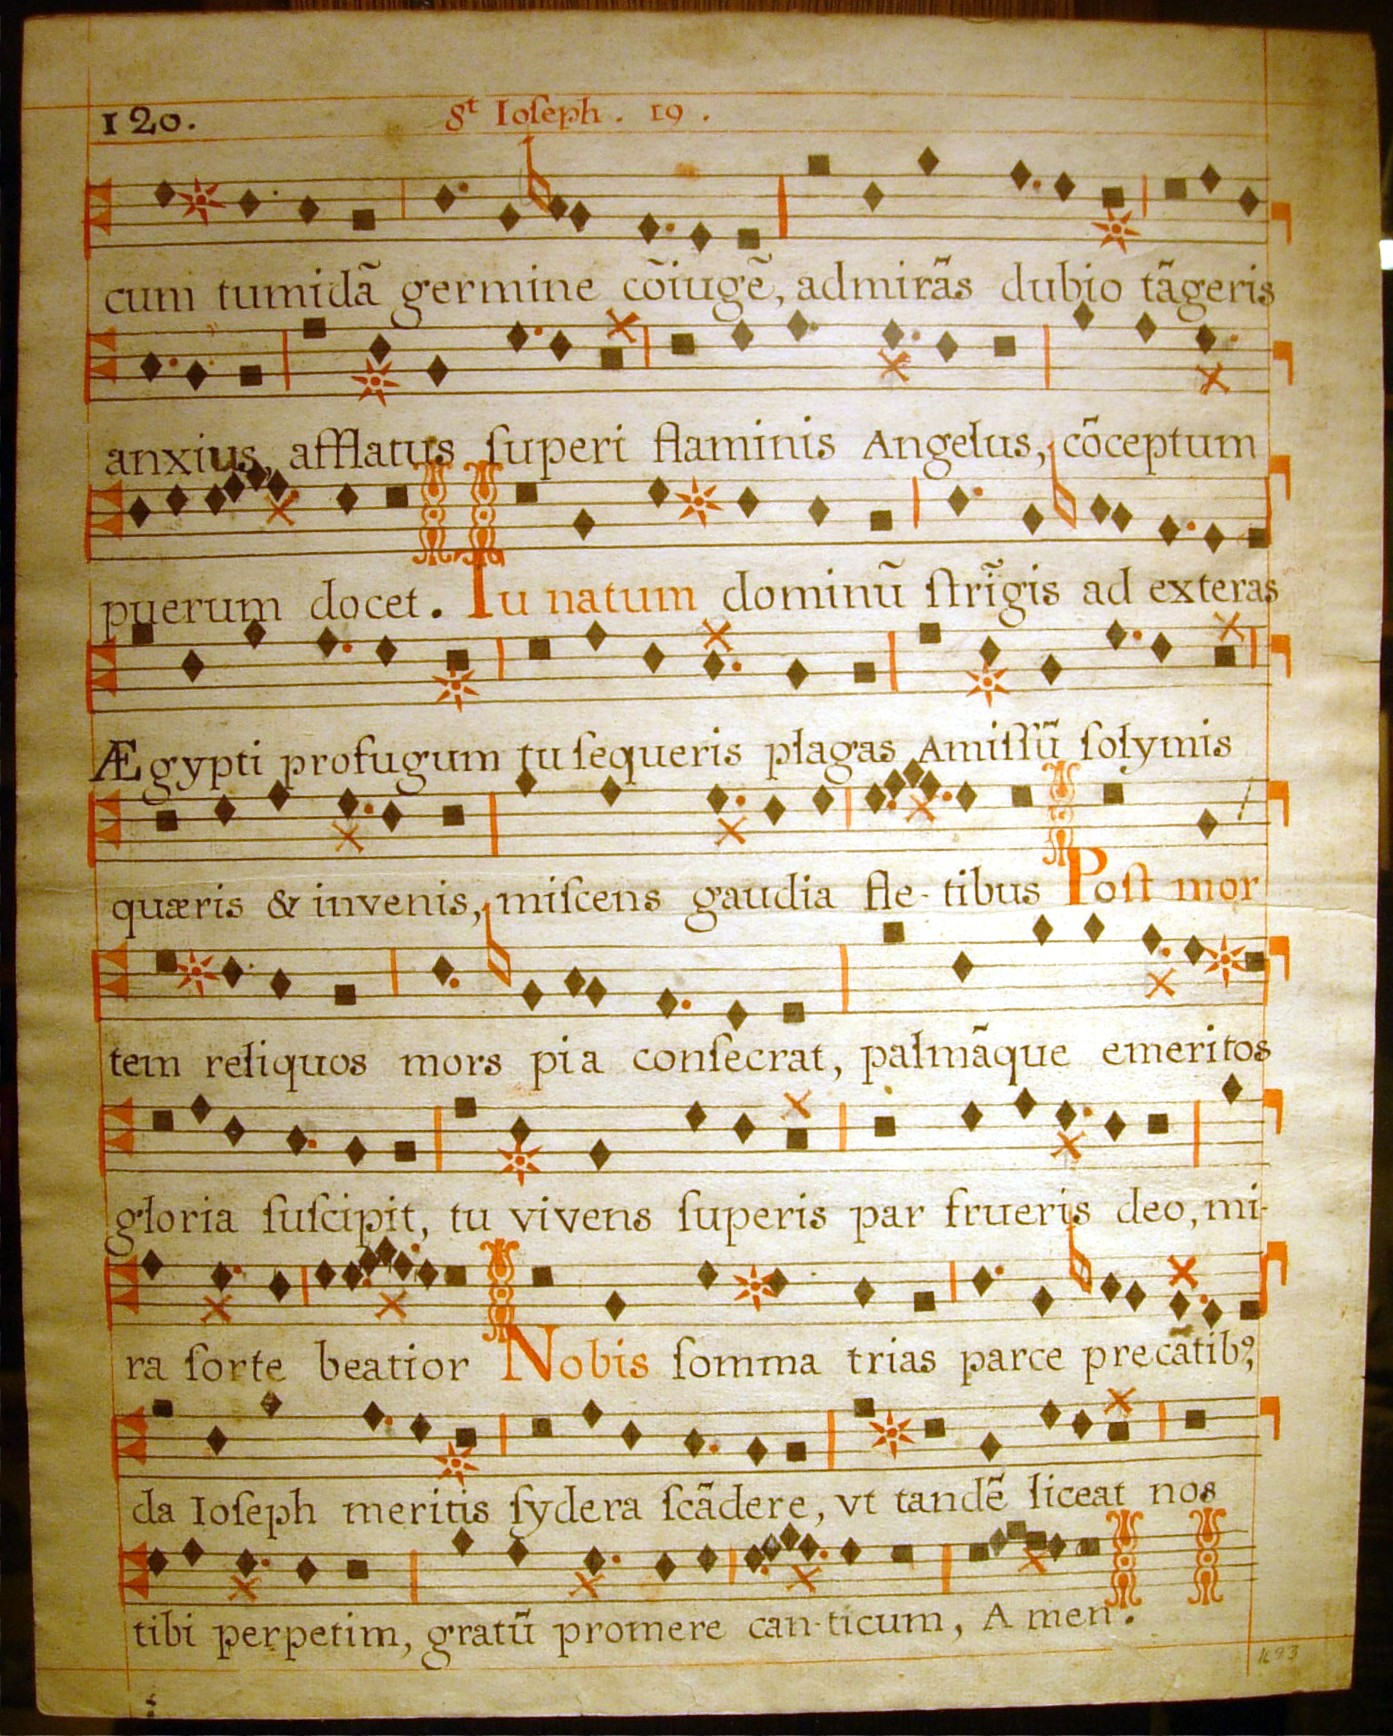 120.
St Ioſeph. 19.
cum tumidã germine cõiugẽ, admirãs dubio tãgeris
anxius, afflatus ſuperi flaminis Angelus, cõceptum
puerum docet. Tu natum dominũ ſtrĩgis ad exteras
Ægypti profugum tu ſequeris plagas Amiſſũ ſolymis
quæris & invenis, miſcens gaudia fle-tibus Poſt mor
tem reliquos mors pia conſecrat, palmãque emeritos
gloria ſuſcipit, tu vivens ſuperis par frueris deo, mi-
ra ſorte beatior Nobis ſomma trias parce precãtibꝰ,
da Ioſeph meritis ſydera ſcãdere, vt tandẽ liceat nos
tibi perpetim, gratũ promere can-ticum, Amen.
1693